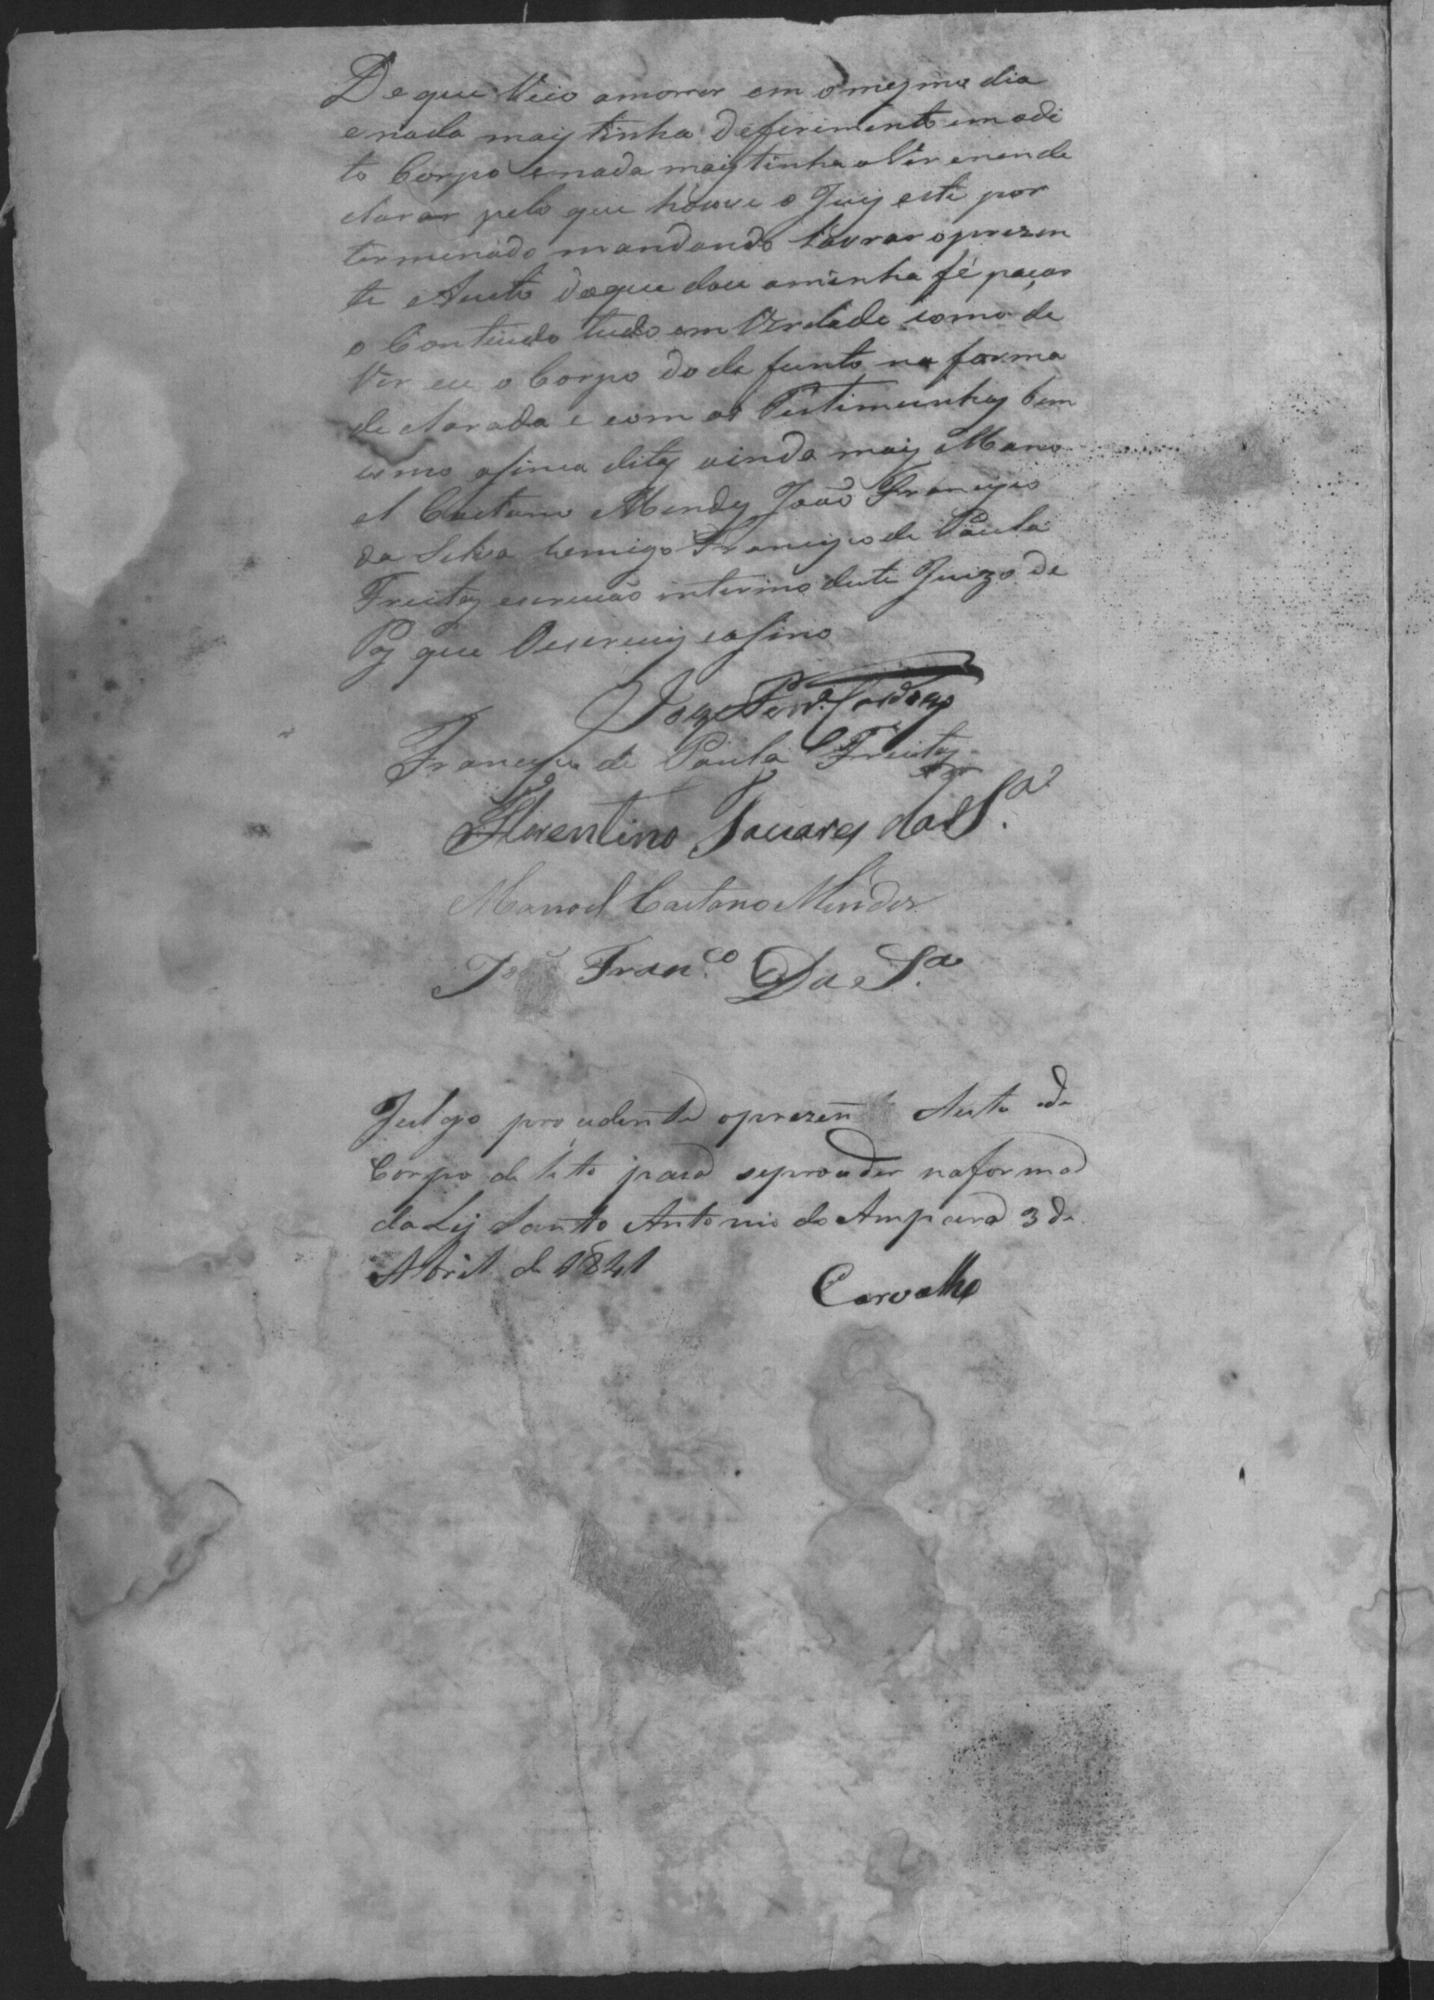 De que Veio amorrer em o mesmo dia
enada mais tinha deferimento em odi
to Corpo enada mais tinha aVer enende
clarar pelo que houve o Juis este por
terminado mandando Lavrar oprezen
te Auto doque dou aminha fé paçar
o Contiudo tudo em Verdade como de
Ver eu o Corpo do defunto na forma
declarada e com as Testimunhas bem
como asima dita ainda mais Mano
el Caetano Mendes João Francisco
da Silva Comigo Francisco de Paula
Freitas escrivão interino deste Juizo de
Paz que Oescrevi easino
Joze Ferr.ª Cardozo
Francisco de Paula Freitas
Florentino Tavares da S.ª
Manoel Caetano Mendes
Franc.º Da S.ª
Julgo procedente oprezen Auto de
Corpo de lito para seproceder naforma
da Ley Santo Antonio do Amparo 3 de
Abril de 1841
Carvalho